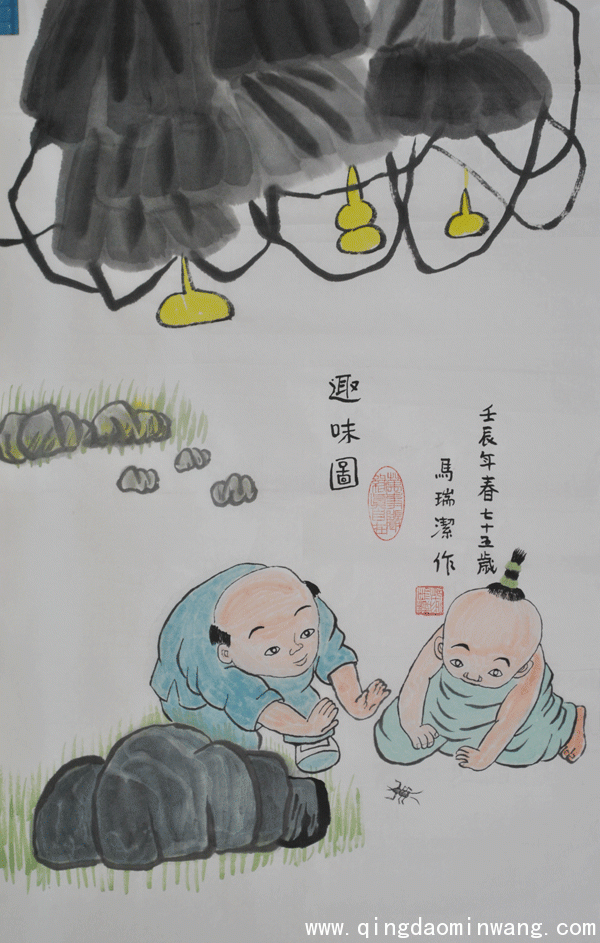 趣味圖
壬辰年春七十五歲
馬瑞潔作
www.qingdaominwang.com